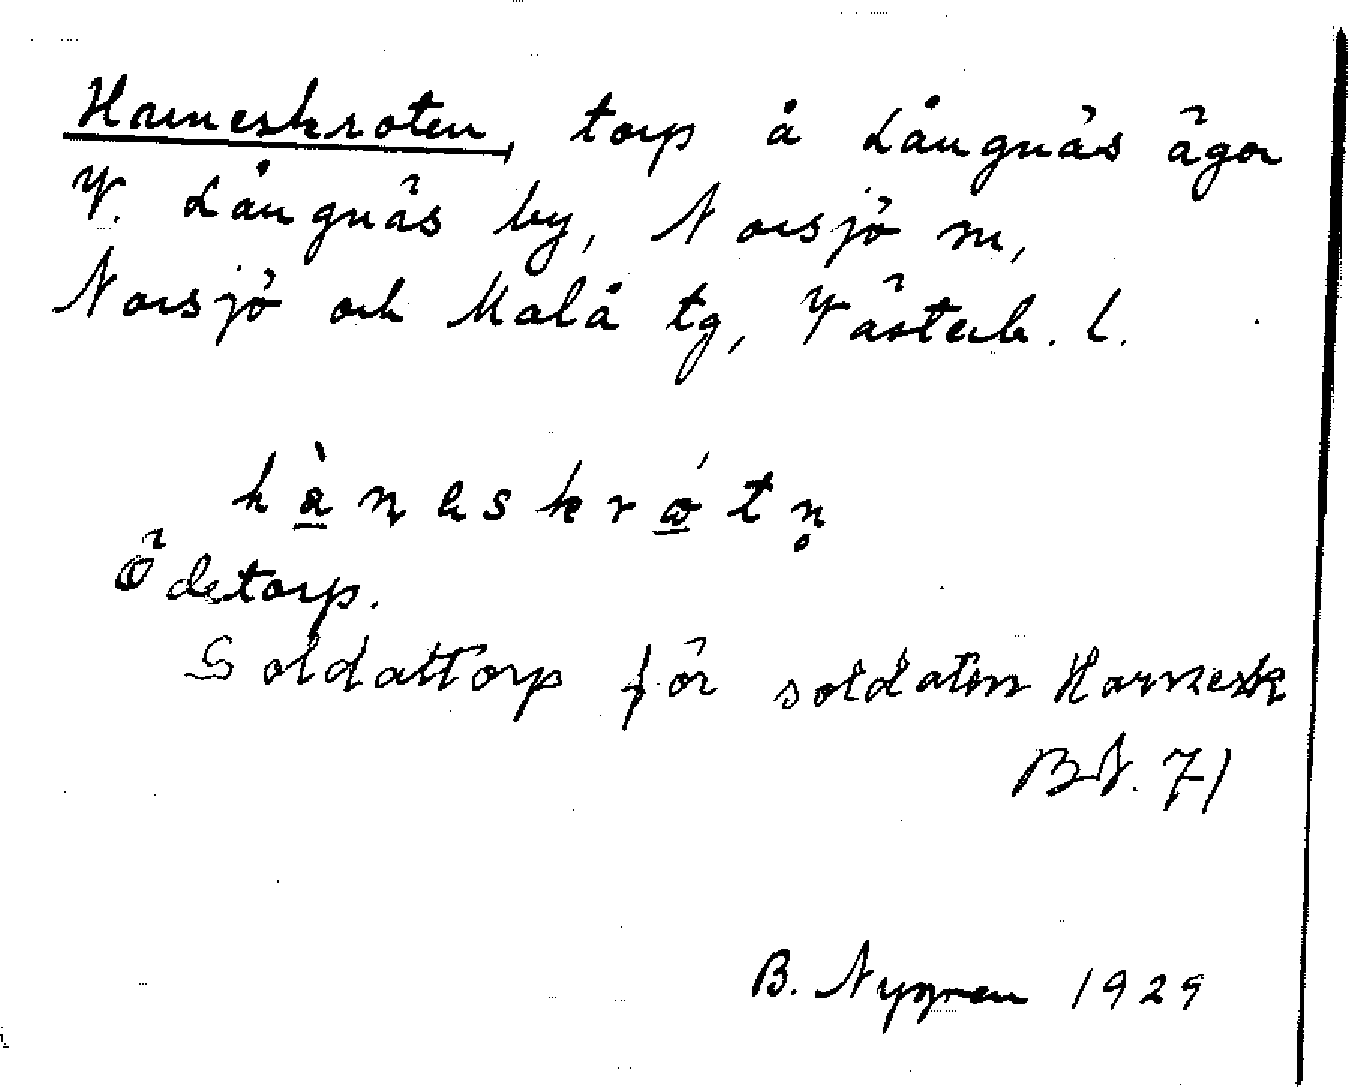 Harneskroten, torp å Långnäs ägor
V. Långnäs by, Norsjö sn,
Norsjö och Malå tg, Västerb. l.
hàṇeskrǿtn̥
Ödetorp.
Soldattorp för soldaten Harnesk
BN. 71
B. Nygren 1929